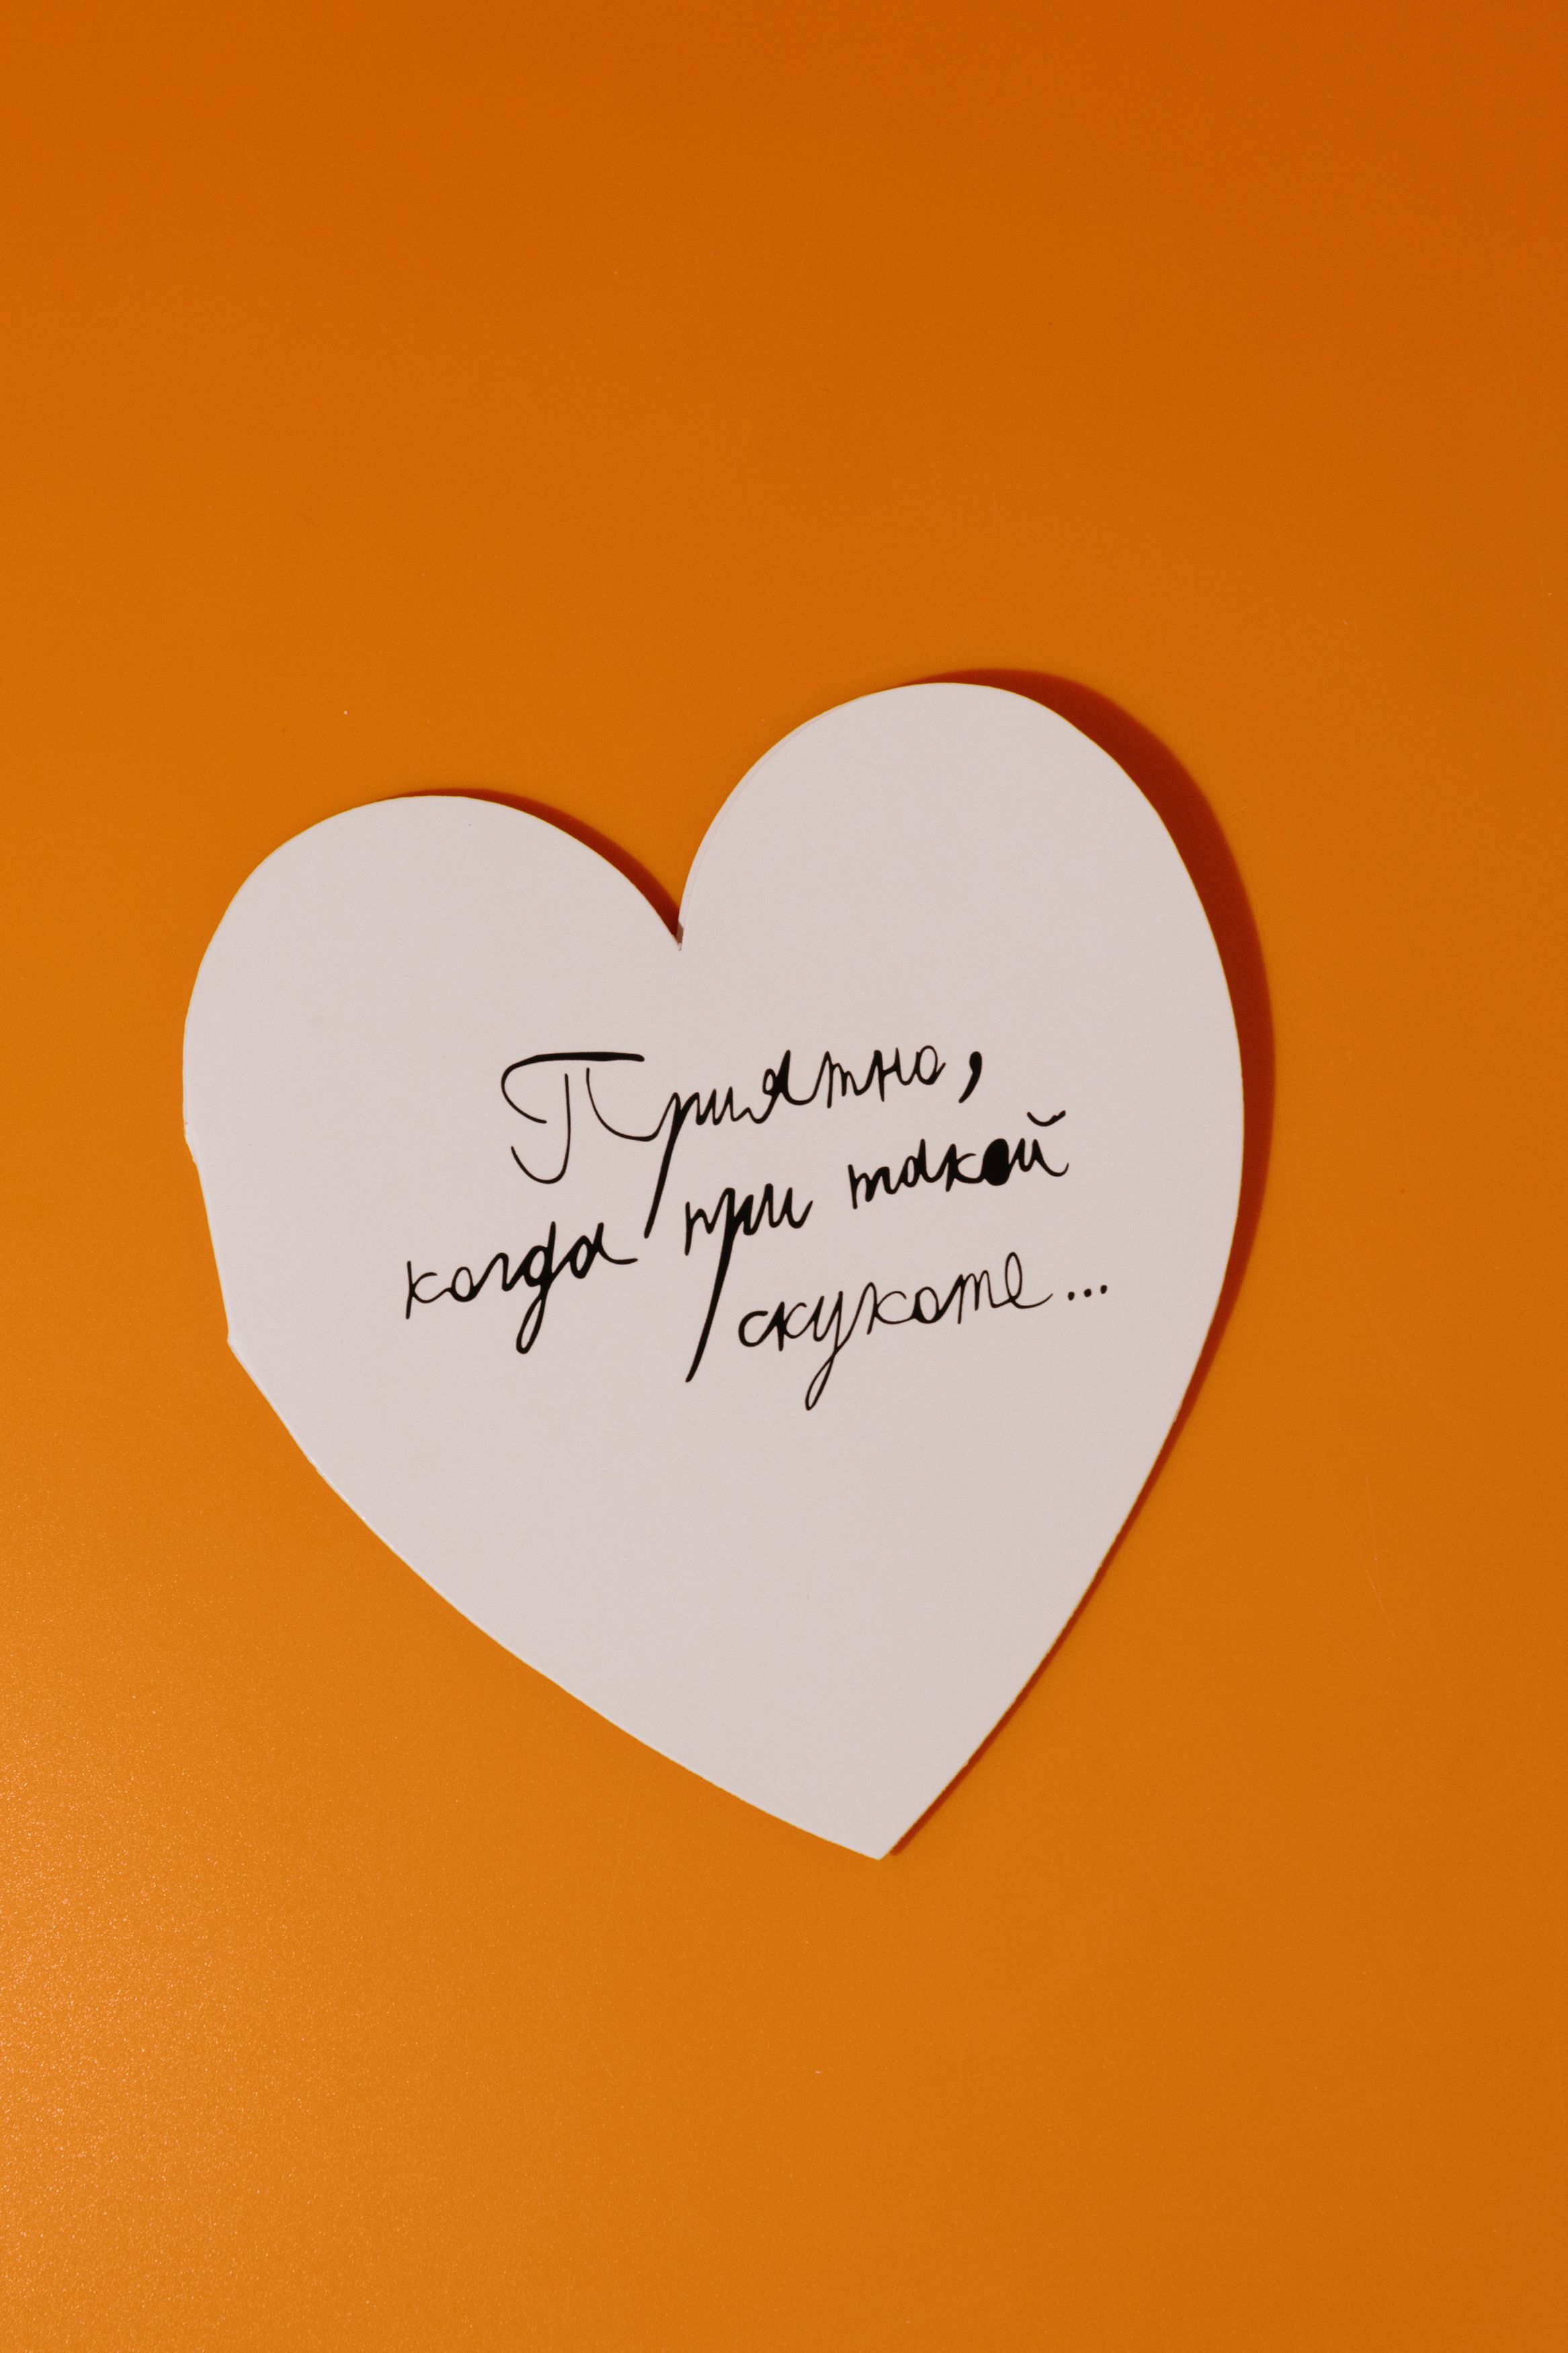 Приятно,
когда при такой
скукоте...